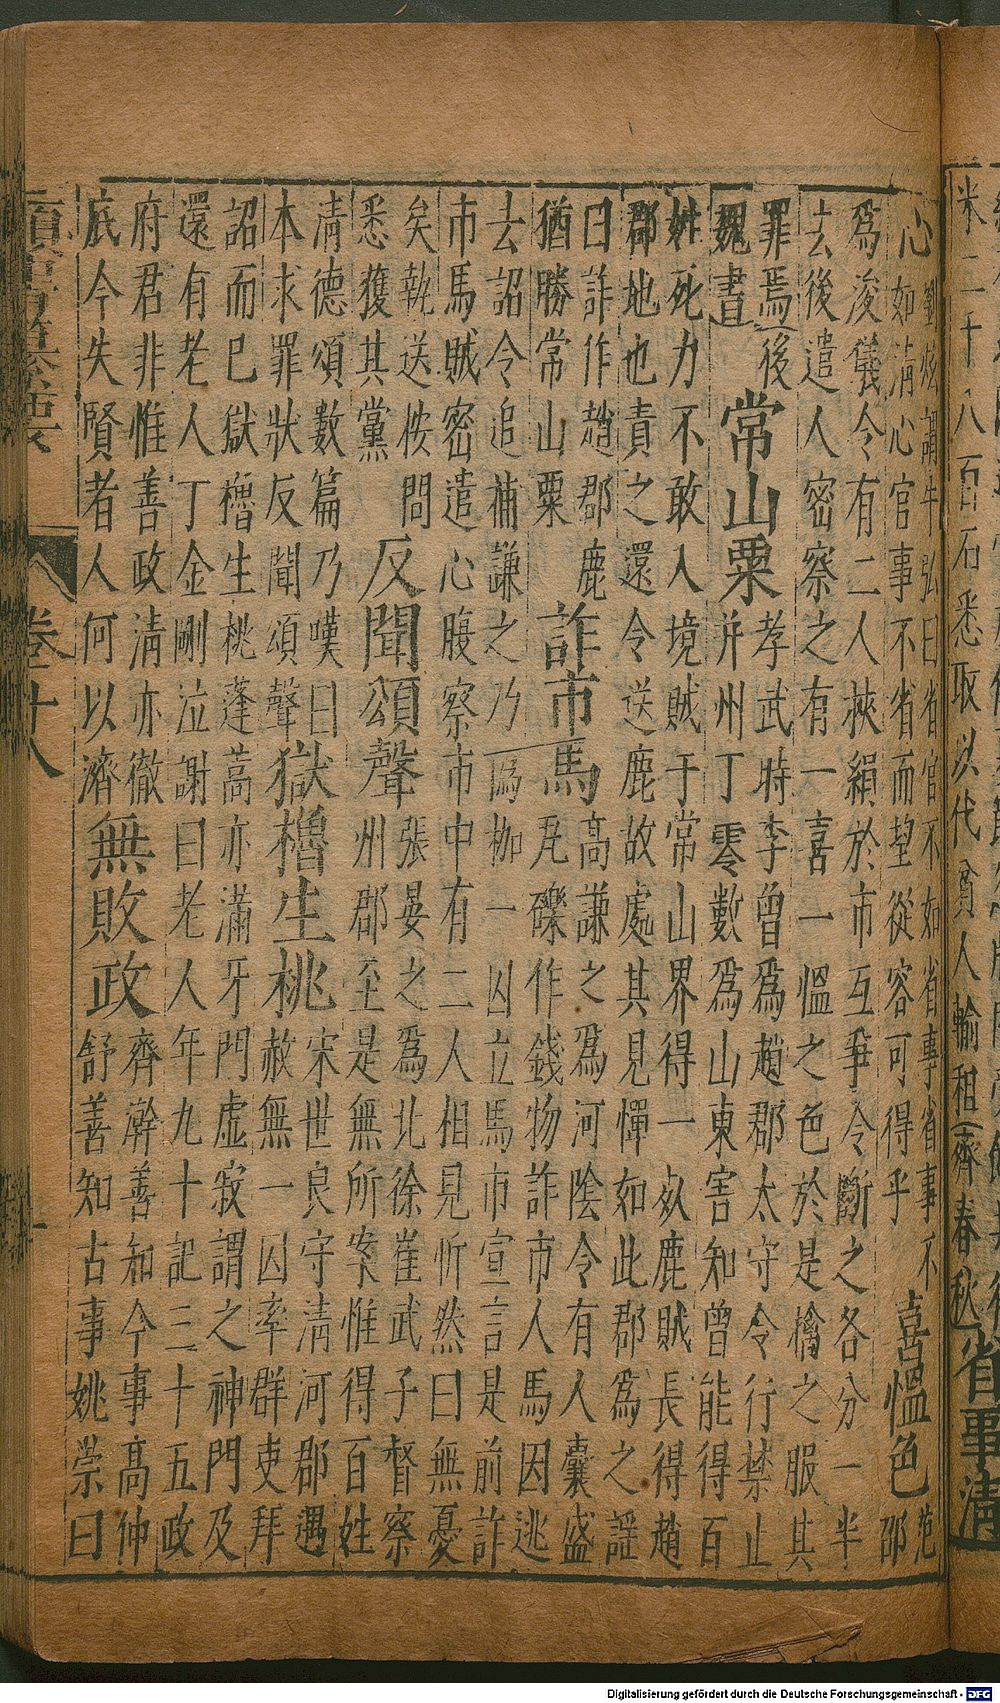 米二千八百石悉取以代貧人輸租(齊春秋)省事清
心
劉炫謂牛弘曰省官不如省事省事不
如清心官事不省而望從容可得乎
喜慍色
范
邵
為浚儀令有二人挾絹於市互爭令斷之各分一半
去後遣人密察之有一喜一慍之色於是擒之服其
罪焉(後
魏書)
常山粟
孝武時李曾為趙郡太守令行禁止
并州丁零數為山東害知曾能得百
姓死力不敢入境賊于常山界得一死鹿賊長得趙
郡地也責之還令送鹿故處其見憚如此郡為之謡
曰詐作趙郡鹿
猶勝常山粟
詐市馬
高謙之為河陰令有人囊盛
瓦礫作錢物詐市人馬因逃
去詔令追捕謙之乃偽枷一囚立馬市宣言是前詐
市馬賊密遣心腹察市中有二人相見忻然曰無憂
矣執送按問
悉獲其黨
反聞頌聲
張晏之為北徐崔武子督察
州郡至是無所案惟得百姓
清德頌數篇乃嘆曰
本求罪狀反聞頌聲
獄櫓生桃
宋世良守清河郡遇
赦無一囚率群吏拜
詔而已獄櫓生桃蓬蒿亦滿牙門虛寂謂之神門及
還有老人丁金剛泣謝曰老人年九十記三十五政
府君非惟善政清亦徹
底今失賢者人何以濟
無敗政
齊澣善知今事高仲
舒善知古事姚崇曰
類書纂要 卷十八
Digitalisierung gefördert durch die Deutsche Forschungsgemeinschaft - DFG